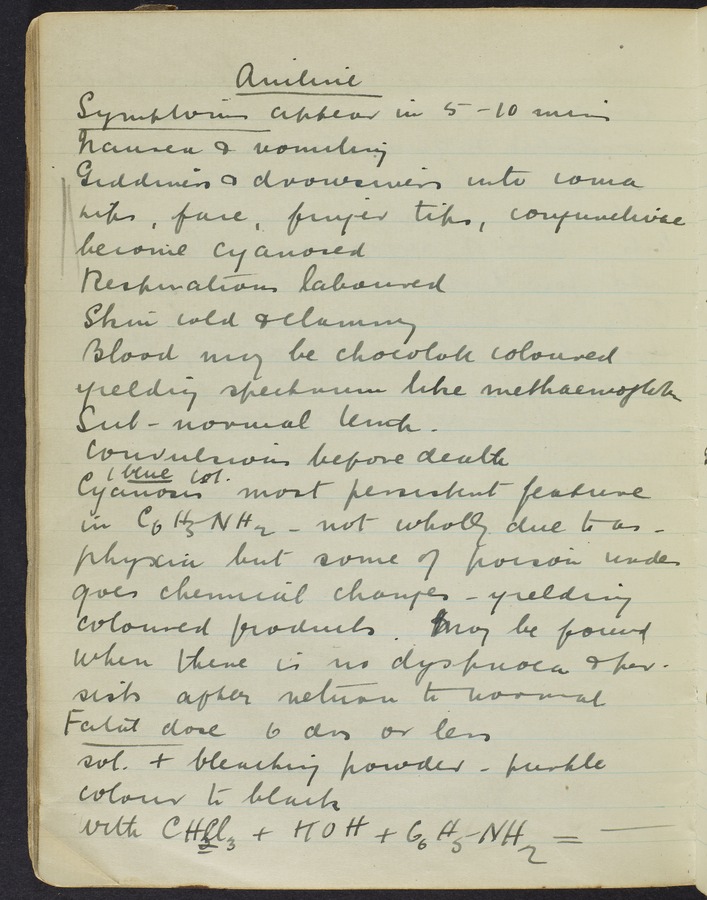 Aniline
Symptoms appear in 5-10 mins
Nausea & vomiting
Giddiness & drowsiness into coma
Lips, face, finger tips, conjunctivae
become cyanosed
Respirations laboured
Skin cold & clammy
Blood may be chocolate coloured
yielding spectrum like methaemoglobin
Sub-normal temp.
Convulsions before death
(blue col.
Cyanosis most persistent feature
in C6H5NH2 - not wholly due to as-
phyxia but some of poison under
goes chemical changes - yielding
coloured products. May be found
when there is no dyspnoea & per-
sists after return to normal
Fatal dose 6 drs or less
sol. + bleaching powder - purple
colour to black
with CHCl3 + KOH + C6H5NH2 = —